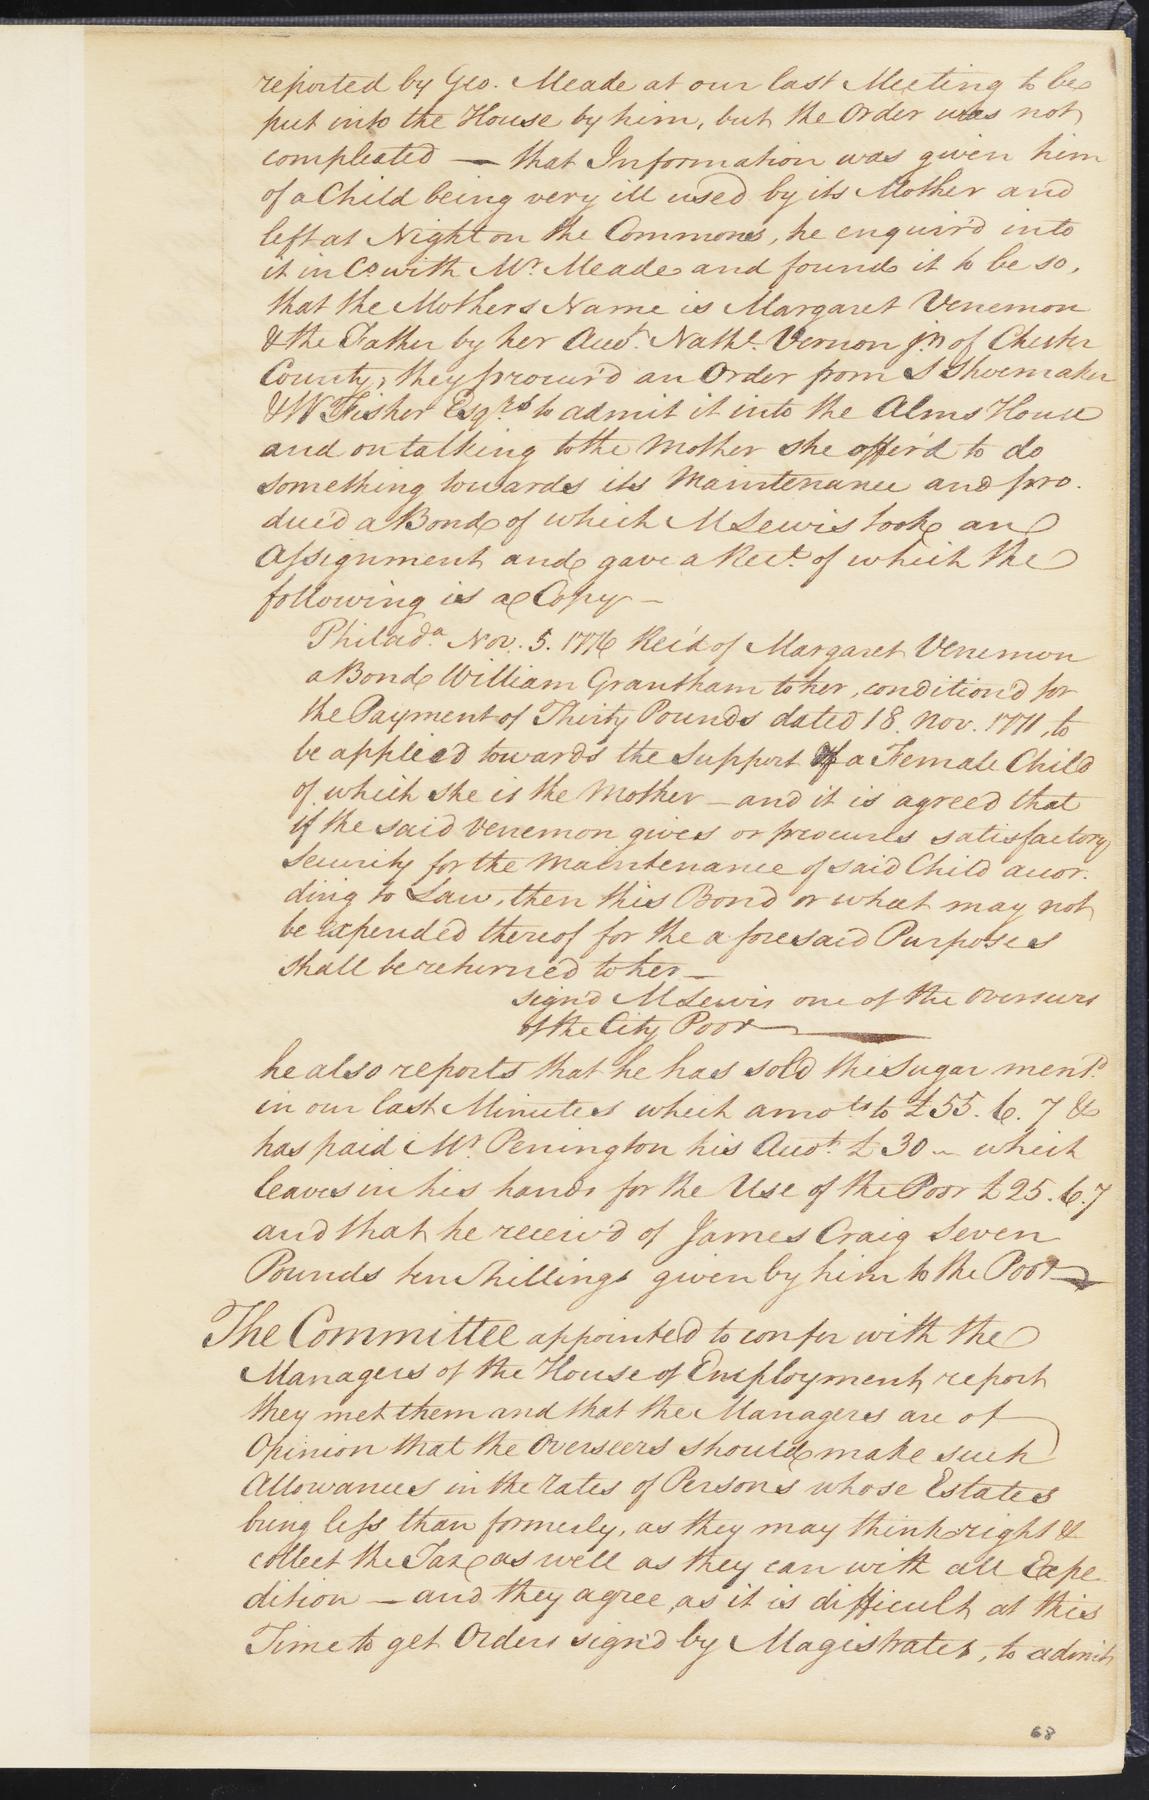 reported by Geo. Meade at our last Meeting to be
put into the House by him, but the Order was not
compleated — that Information was given him
of a Child being very ill used by its Mother and
left at Night on the Commons, he enquir'd into
it in Co with Mr. Meade and found it to be so,
that the Mothers Name is Margaret Venemon
& the Father by her Acct. Nathl. Vernon jn of Chester
County, they procur'd an Order from S Shoemaker
& W Fisher Esqrs to admit it into the Alms House
and on talking to the Mother she offer'd to do
something towards its Maintenance and pro-
duc'd a Bond of which M Lewis took an
Assignment and gave a Rect. of which the
following is a Copy —
Philada. Nov. 5. 1776 Rec'd of Margaret Venemon
a Bond William Grantham to her, condition'd for
the Payment of Thirty Pounds dated 18. Nov. 1771, to
be applied towards the Support of a Female Child
of which she is the Mother — and it is agreed that
if the said Venemon gives or procures satisfactory
Security for the Maintenance of said Child accor-
ding to Law, then this Bond or what may not
be expended thereof for the aforesaid Purposes
shall be return'd to her —
sign'd M Lewis one of the Overseers
of the City Poor
he also reports that he has sold the Sugar mentd.
in our last Minutes which amots to £55. 6. 7 &
has paid Mr Penington his Acct. £30 — which
leaves in his hands for the Use of the Poor £25. 6. 7
and that he receiv'd of James Craig Seven
Pounds ten Shillings given by him to the Poor
The Committee appointed to confer with the
Managers of the House of Employment report
they met them and that the Managers are of
Opinion that the Overseers should make such
Allowances in the rates of Persons whose Estates
being less than formerly, as they may think right &
collect the Tax as well as they can with all Expe-
dition — and they agree, as it is difficult at this
Time to get Orders sign'd by Magistrates, to admit
68